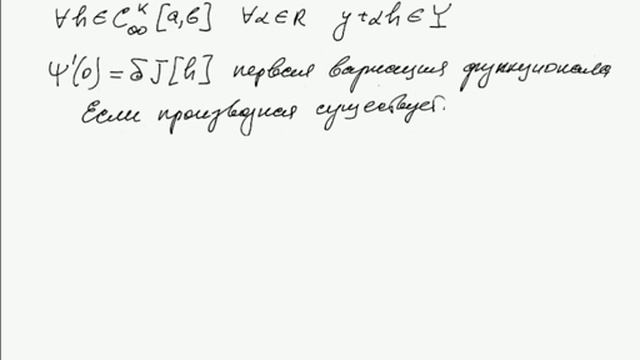 ∀h∈C∞ᵏ[a,b] ∀α∈R y+αh∈Y
Ψ'(0)=δJ[h] первая вариация функционала
Если производная существует.